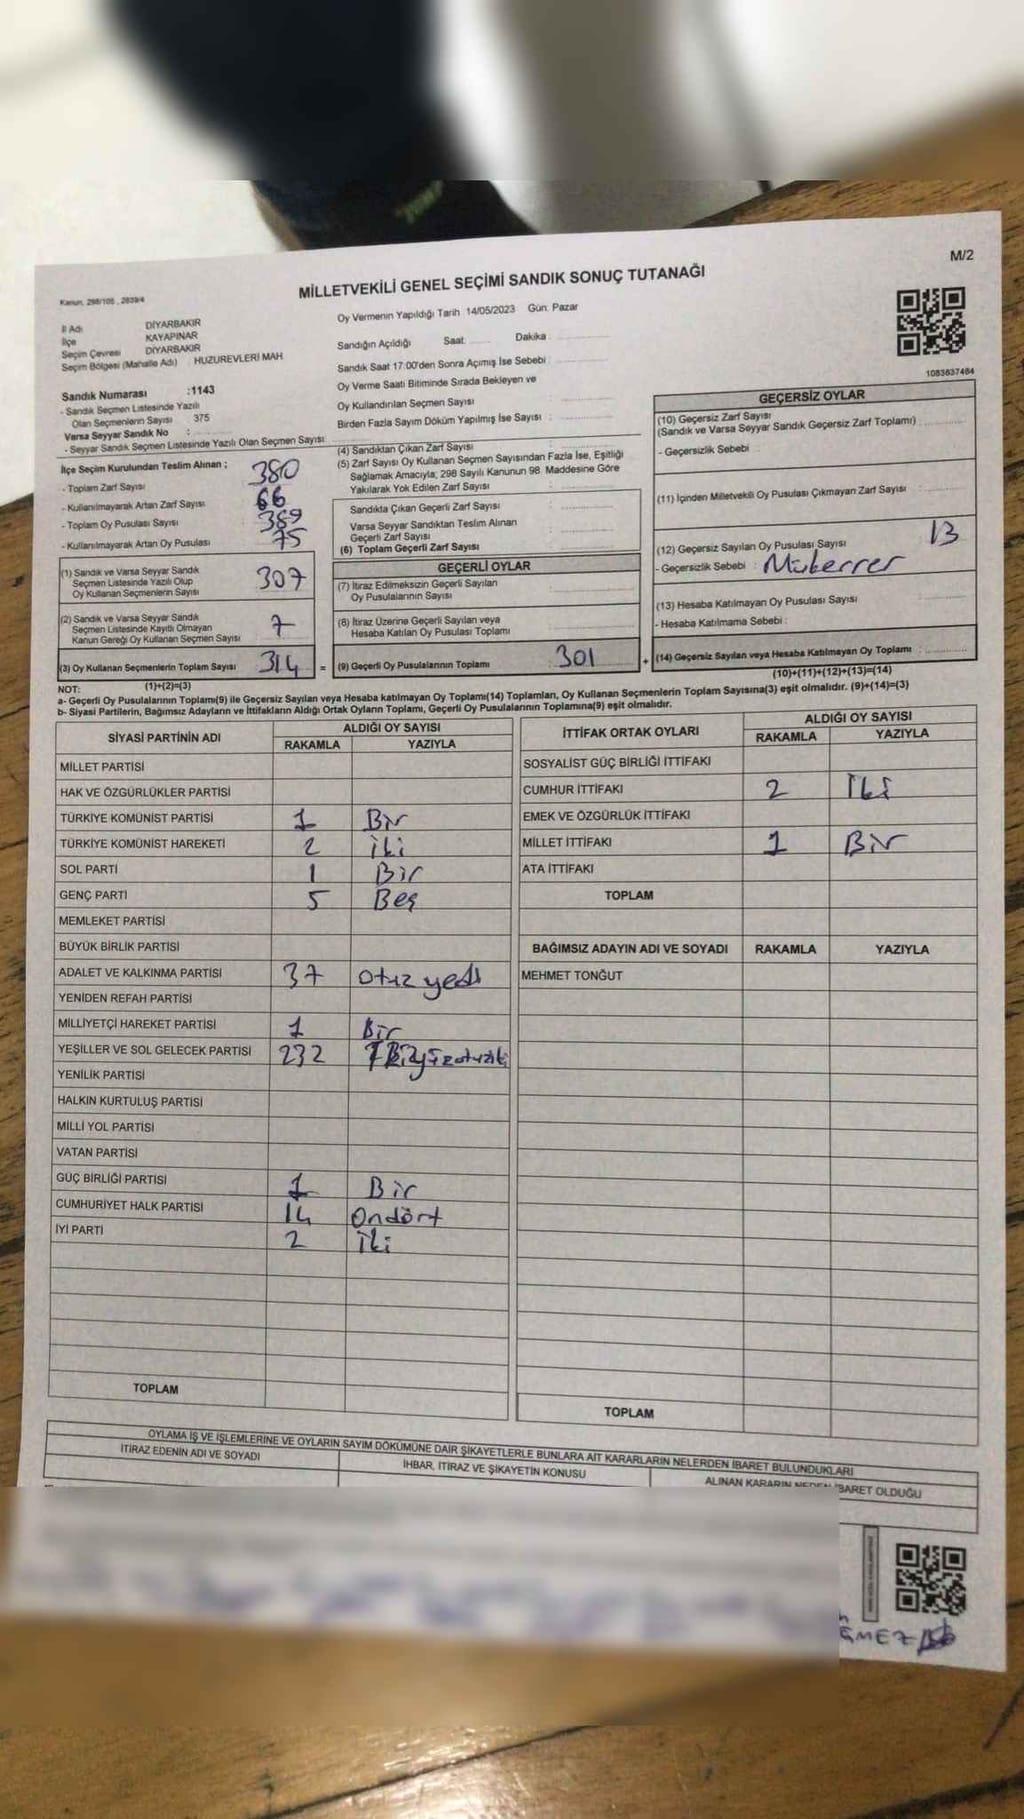 M/2
MİLLETVEKİLİ GENEL SEÇİMİ SANDIK SONUÇ TUTANAĞI
Kanun, 298/105 , 2839/4
İl Adı DİYARBAKIR
İlçe KAYAPINAR
Seçim Çevresi DİYARBAKIR
Seçim Bölgesi (Mahalle Adı) : HUZUREVLERİ MAH
Oy Vermenin Yapıldığı Tarih 14/05/2023 Gün: Pazar
Sandığın Açıldığı Saat: Dakika
Sandık Saat 17:00'den Sonra Açımış İse Sebebi
Oy Verme Saati Bitiminde Sırada Bekleyen ve
Oy Kullandırılan Seçmen Sayısı :
Birden Fazla Sayım Döküm Yapılmış İse Sayısı :
1083637484
Sandık Numarası :1143
- Sandık Seçmen Listesinde Yazılı
Olan Seçmenlerin Sayısı : 375
Varsa Seyyar Sandık No :
- Seyyar Sandık Seçmen Listesinde Yazılı Olan Seçmen Sayısı:
İlçe Seçim Kurulundan Teslim Alınan ;
- Toplam Zarf Sayısı 380
- Kullanılmayarak Artan Zarf Sayısı 66
- Toplam Oy Pusulası Sayısı 389
- Kullanılmayarak Artan Oy Pusulası 75
(1) Sandık ve Varsa Seyyar Sandık
Seçmen Listesinde Yazılı Olup
Oy Kullanan Seçmenlerin Sayısı 307
(2) Sandık ve Varsa Seyyar Sandık
Seçmen Listesinde Kayıtlı Olmayan
Kanun Gereği Oy Kullanan Seçmen Sayısı 7
(3) Oy Kullanan Seçmenlerin Toplam Sayısı 314 =
(1)+(2)=(3)
(4) Sandıktan Çıkan Zarf Sayısı
(5) Zarf Sayısı Oy Kullanan Seçmen Sayısından Fazla İse, Eşitliği
Sağlamak Amacıyla; 298 Sayılı Kanunun 98. Maddesine Göre
Yakılarak Yok Edilen Zarf Sayısı :
Sandıkta Çıkan Geçerli Zarf Sayısı
Varsa Seyyar Sandıktan Teslim Alınan
Geçerli Zarf Sayısı
(6) Toplam Geçerli Zarf Sayısı
GEÇERLİ OYLAR
(7) İtiraz Edilmeksizin Geçerli Sayılan
Oy Pusulalarının Sayısı
(8) İtiraz Üzerine Geçerli Sayılan veya
Hesaba Katılan Oy Pusulası Toplamı
(9) Geçerli Oy Pusulalarının Toplamı 301 +
GEÇERSİZ OYLAR
(10) Geçersiz Zarf Sayısı
(Sandık ve Varsa Seyyar Sandık Geçersiz Zarf Toplamı)
- Geçersizlik Sebebi
(11) İçinden Milletvekili Oy Pusulası Çıkmayan Zarf Sayısı
(12) Geçersiz Sayılan Oy Pusulası Sayısı 13
- Geçersizlik Sebebi : Mükerrer
(13) Hesaba Katılmayan Oy Pusulası Sayısı
- Hesaba Katılmama Sebebi :
(14) Geçersiz Sayılan veya Hesaba Katılmayan Oy Toplamı :
(10)+(11)+(12)+(13)=(14)
NOT:
a- Geçerli Oy Pusulalarının Toplamı(9) ile Geçersiz Sayılan veya Hesaba katılmayan Oy Toplamı(14) Toplamları, Oy Kullanan Seçmenlerin Toplam Sayısına(3) eşit olmalıdır. (9)+(14)=(3)
b- Siyasi Partilerin, Bağımsız Adayların ve İttifakların Aldığı Ortak Oyların Toplamı, Geçerli Oy Pusulalarının Toplamına(9) eşit olmalıdır.
SİYASİ PARTİNİN ADI ALDIĞI OY SAYISI
RAKAMLA YAZIYLA
MİLLET PARTİSİ
HAK VE ÖZGÜRLÜKLER PARTİSİ
TÜRKİYE KOMÜNİST PARTİSİ 1 Bir
TÜRKİYE KOMÜNİST HAREKETİ 2 iki
SOL PARTİ 1 Bir
GENÇ PARTİ 5 Beş
MEMLEKET PARTİSİ
BÜYÜK BİRLİK PARTİSİ
ADALET VE KALKINMA PARTİSİ 37 otuz yedi
YENİDEN REFAH PARTİSİ
MİLLİYETÇİ HAREKET PARTİSİ 1 Bir
YEŞİLLER VE SOL GELECEK PARTİSİ 232
YENİLİK PARTİSİ
HALKIN KURTULUŞ PARTİSİ
MİLLİ YOL PARTİSİ
VATAN PARTİSİ
GÜÇ BİRLİĞİ PARTİSİ 1 Bir
CUMHURİYET HALK PARTİSİ 14 Ondört
İYİ PARTİ 2 İki
TOPLAM
İTTİFAK ORTAK OYLARI ALDIĞI OY SAYISI
RAKAMLA YAZIYLA
SOSYALİST GÜÇ BİRLİĞİ İTTİFAKI
CUMHUR İTTİFAKI 2 İki
EMEK VE ÖZGÜRLÜK İTTİFAKI
MİLLET İTTİFAKI 1 Bir
ATA İTTİFAKI
TOPLAM
BAĞIMSIZ ADAYIN ADI VE SOYADI RAKAMLA YAZIYLA
MEHMET TONĞUT
TOPLAM
OYLAMA İŞ VE İŞLEMLERİNE VE OYLARIN SAYIM DÖKÜMÜNE DAİR ŞİKAYETLERLE BUNLARA AİT KARARLARIN NELERDEN İBARET BULUNDUKLARI
İTİRAZ EDENİN ADI VE SOYADI İHBAR, İTİRAZ VE ŞİKAYETİN KONUSU ALINAN KARARIN NEDEN İBARET OLDUĞU